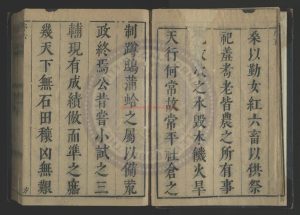 桑以勤女紅六畜以供祭
祀羞耈老皆農之所有事
之水毀木饑火旱
天行何常故常平社倉之
制蹲鴟蒲蛤之屬以備荒
政終焉公昔嘗小試之三
輔現有成績倣而準之庶
幾天下無石田穰凶無艱